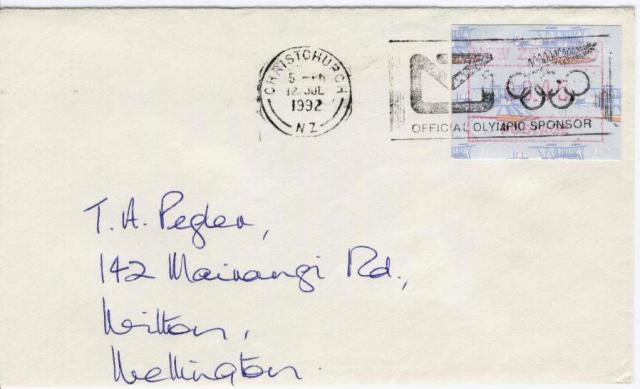 CHRISTCHURCH
5 - PM
12 JUL
1992
NZ
OFFICIAL OLYMPIC SPONSOR
T. A. Pegler,
142 Mairangi Rd.,
Wilton,
Wellington.